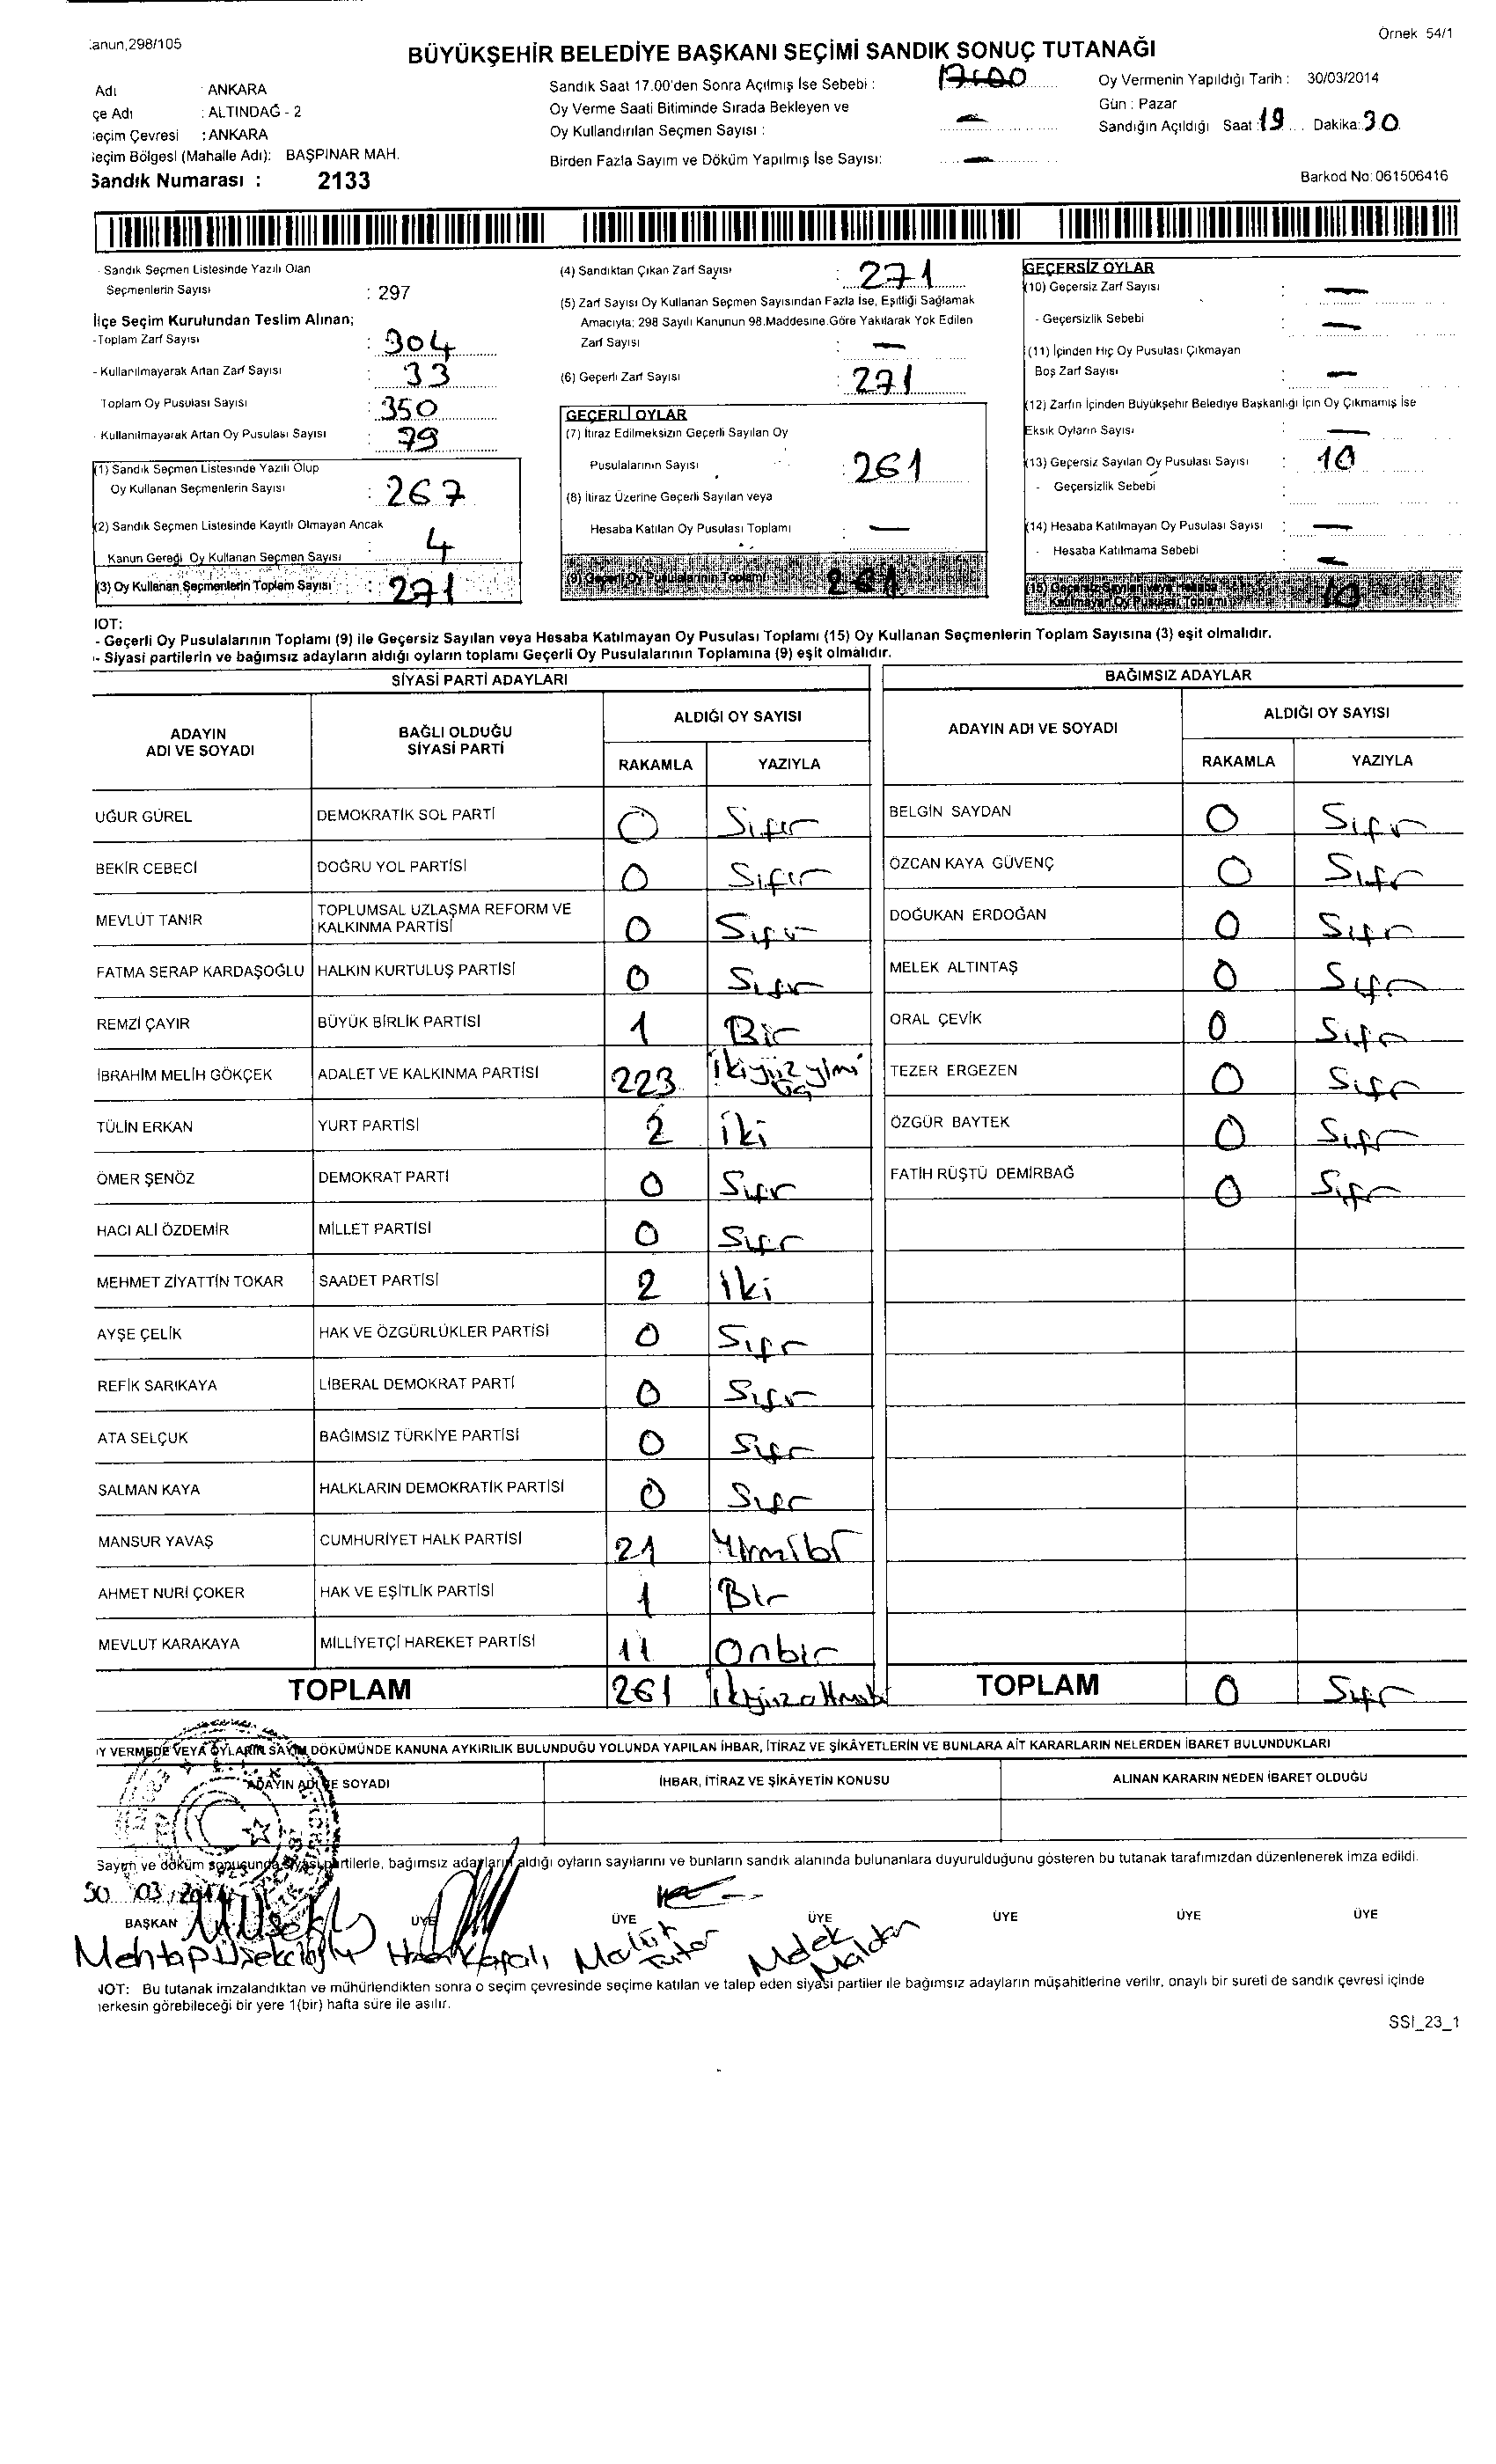 anun,298/105
Örnek 54/1
BÜYÜKŞEHİR BELEDİYE BAŞKANI SEÇİMİ SANDIK SONUÇ TUTANAĞI
Adı : ANKARA
çe Adı : ALTINDAĞ - 2
eçim Çevresi : ANKARA
eçim Bölgesi (Mahalle Adı): BAŞPINAR MAH.
Sandık Numarası : 2133
Sandık Saat 17.00'den Sonra Açılmış İse Sebebi :
Oy Verme Saati Bitiminde Sırada Bekleyen ve
Oy Kullandırılan Seçmen Sayısı : —
Birden Fazla Sayım ve Döküm Yapılmış İse Sayısı: —
Oy Vermenin Yapıldığı Tarih : 30/03/2014
Gün : Pazar
Sandığın Açıldığı Saat : 19 Dakika: 30
Barkod No: 061506416
- Sandık Seçmen Listesinde Yazılı Olan
Seçmenlerin Sayısı : 297
İlçe Seçim Kurulundan Teslim Alınan;
-Toplam Zarf Sayısı : 304
- Kullanılmayarak Artan Zarf Sayısı : 33
Toplam Oy Pusulası Sayısı : 350
- Kullanılmayarak Artan Oy Pusulası Sayısı : 79
(1) Sandık Seçmen Listesinde Yazılı Olup
Oy Kullanan Seçmenlerin Sayısı : 267
(2) Sandık Seçmen Listesinde Kayıtlı Olmayan Ancak
Kanun Gereği Oy Kullanan Seçmen Sayısı : 4
(3) Oy Kullanan Seçmenlerin Toplam Sayısı : 271
(4) Sandıktan Çıkan Zarf Sayısı : 271
(5) Zarf Sayısı Oy Kullanan Seçmen Sayısından Fazla İse, Eşitliği Sağlamak
Amacıyla; 298 Sayılı Kanunun 98.Maddesine Göre Yakılarak Yok Edilen
Zarf Sayısı : —
(6) Geçerli Zarf Sayısı : 271
GEÇERLİ OYLAR
(7) İtiraz Edilmeksizin Geçerli Sayılan Oy
Pusulalarının Sayısı : 261
(8) İtiraz Üzerine Geçerli Sayılan veya
Hesaba Katılan Oy Pusulası Toplamı : —
(9) Geçerli Oy Pusulalarının Toplamı : 261
GEÇERSİZ OYLAR
(10) Geçersiz Zarf Sayısı : —
- Geçersizlik Sebebi : —
(11) İçinden Hiç Oy Pusulası Çıkmayan
Boş Zarf Sayısı : —
(12) Zarfın İçinden Büyükşehir Belediye Başkanlığı İçin Oy Çıkmamış İse
Eksik Oyların Sayısı : —
(13) Geçersiz Sayılan Oy Pusulası Sayısı : 10
- Geçersizlik Sebebi :
(14) Hesaba Katılmayan Oy Pusulası Sayısı : —
- Hesaba Katılmama Sebebi : —
(15) Geçersiz Sayılan veya Hesaba
Katılmayan Oy Pusulası Toplamı : 10
NOT:
- Geçerli Oy Pusulalarının Toplamı (9) ile Geçersiz Sayılan veya Hesaba Katılmayan Oy Pusulası Toplamı (15) Oy Kullanan Seçmenlerin Toplam Sayısına (3) eşit olmalıdır.
- Siyasi partilerin ve bağımsız adayların aldığı oyların toplamı Geçerli Oy Pusulalarının Toplamına (9) eşit olmalıdır.
SİYASİ PARTİ ADAYLARI
ADAYIN ADI VE SOYADI BAĞLI OLDUĞU SİYASİ PARTİ ALDIĞI OY SAYISI
RAKAMLA YAZIYLA
UĞUR GÜREL DEMOKRATİK SOL PARTİ 0 Sıfır
BEKİR CEBECİ DOĞRU YOL PARTİSİ 0 Sıfır
MEVLÜT TANIR TOPLUMSAL UZLAŞMA REFORM VE KALKINMA PARTİSİ 0 Sıfır
FATMA SERAP KARDAŞOĞLU HALKIN KURTULUŞ PARTİSİ 0 Sıfır
REMZİ ÇAYIR BÜYÜK BİRLİK PARTİSİ 1 Bir
İBRAHİM MELİH GÖKÇEK ADALET VE KALKINMA PARTİSİ 223 ikiyüz yirmi üç
TÜLİN ERKAN YURT PARTİSİ 2 iki
ÖMER ŞENÖZ DEMOKRAT PARTİ 0 Sıfır
HACI ALİ ÖZDEMİR MİLLET PARTİSİ 0 Sıfır
MEHMET ZİYATTİN TOKAR SAADET PARTİSİ 2 iki
AYŞE ÇELİK HAK VE ÖZGÜRLÜKLER PARTİSİ 0 Sıfır
REFİK SARIKAYA LİBERAL DEMOKRAT PARTİ 0 Sıfır
ATA SELÇUK BAĞIMSIZ TÜRKİYE PARTİSİ 0 Sıfır
SALMAN KAYA HALKLARIN DEMOKRATİK PARTİSİ 0 Sıfır
MANSUR YAVAŞ CUMHURİYET HALK PARTİSİ 21 Yirmibir
AHMET NURİ ÇOKER HAK VE EŞİTLİK PARTİSİ 1 Bir
MEVLUT KARAKAYA MİLLİYETÇİ HAREKET PARTİSİ 11 Onbir
TOPLAM 261 ikiyüzaltmışbir
BAĞIMSIZ ADAYLAR
ADAYIN ADI VE SOYADI ALDIĞI OY SAYISI
RAKAMLA YAZIYLA
BELGİN SAYDAN 0 Sıfır
ÖZCAN KAYA GÜVENÇ 0 Sıfır
DOĞUKAN ERDOĞAN 0 Sıfır
MELEK ALTINTAŞ 0 Sıfır
ORAL ÇEVİK 0 Sıfır
TEZER ERGEZEN 0 Sıfır
ÖZGÜR BAYTEK 0 Sıfır
FATİH RÜŞTÜ DEMİRBAĞ 0 Sıfır
TOPLAM 0 Sıfır
Y VERMEDE VEYA OYLARIN SAYIM DÖKÜMÜNDE KANUNA AYKIRILIK BULUNDUĞU YOLUNDA YAPILAN İHBAR, İTİRAZ VE ŞİKÂYETLERİN VE BUNLARA AİT KARARLARIN NELERDEN İBARET BULUNDUKLARI
ADAYIN ADI VE SOYADI İHBAR, İTİRAZ VE ŞİKÂYETİN KONUSU ALINAN KARARIN NEDEN İBARET OLDUĞU
Sayım ve döküm sonucunda siyasi partilerle, bağımsız adayların aldığı oyların sayılarını ve bunların sandık alanında bulunanlara duyurulduğunu gösteren bu tutanak tarafımızdan düzenlenerek imza edildi.
30 03 2014
BAŞKAN ÜYE ÜYE ÜYE ÜYE ÜYE ÜYE
Mehtap Melek
NOT: Bu tutanak imzalandıktan ve mühürlendikten sonra o seçim çevresinde seçime katılan ve talep eden siyasi partiler ile bağımsız adayların müşahitlerine verilir, onaylı bir sureti de sandık çevresi içinde
herkesin görebileceği bir yere 1(bir) hafta süre ile asılır.
SSI_23_1